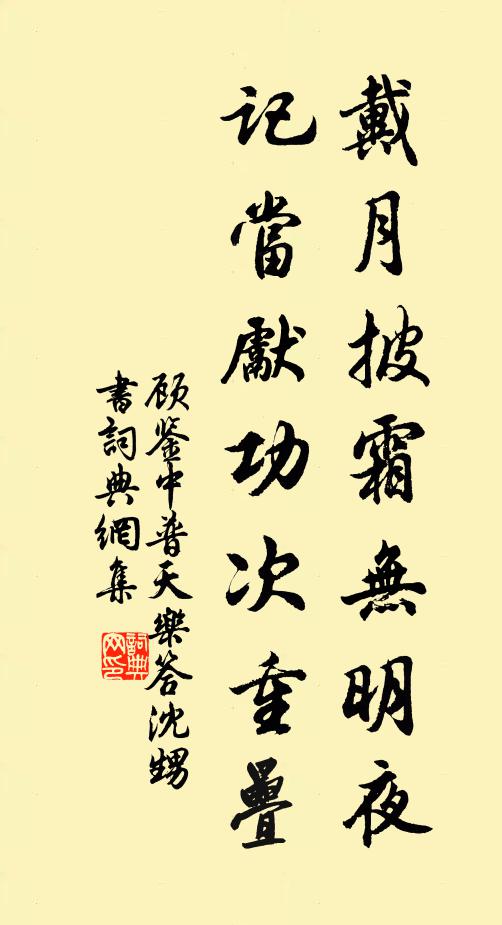 戴月披霜無明夜
記當獻功次重疊
顾鉴中普天樂答沈甥
書詞典網集
詞典网印